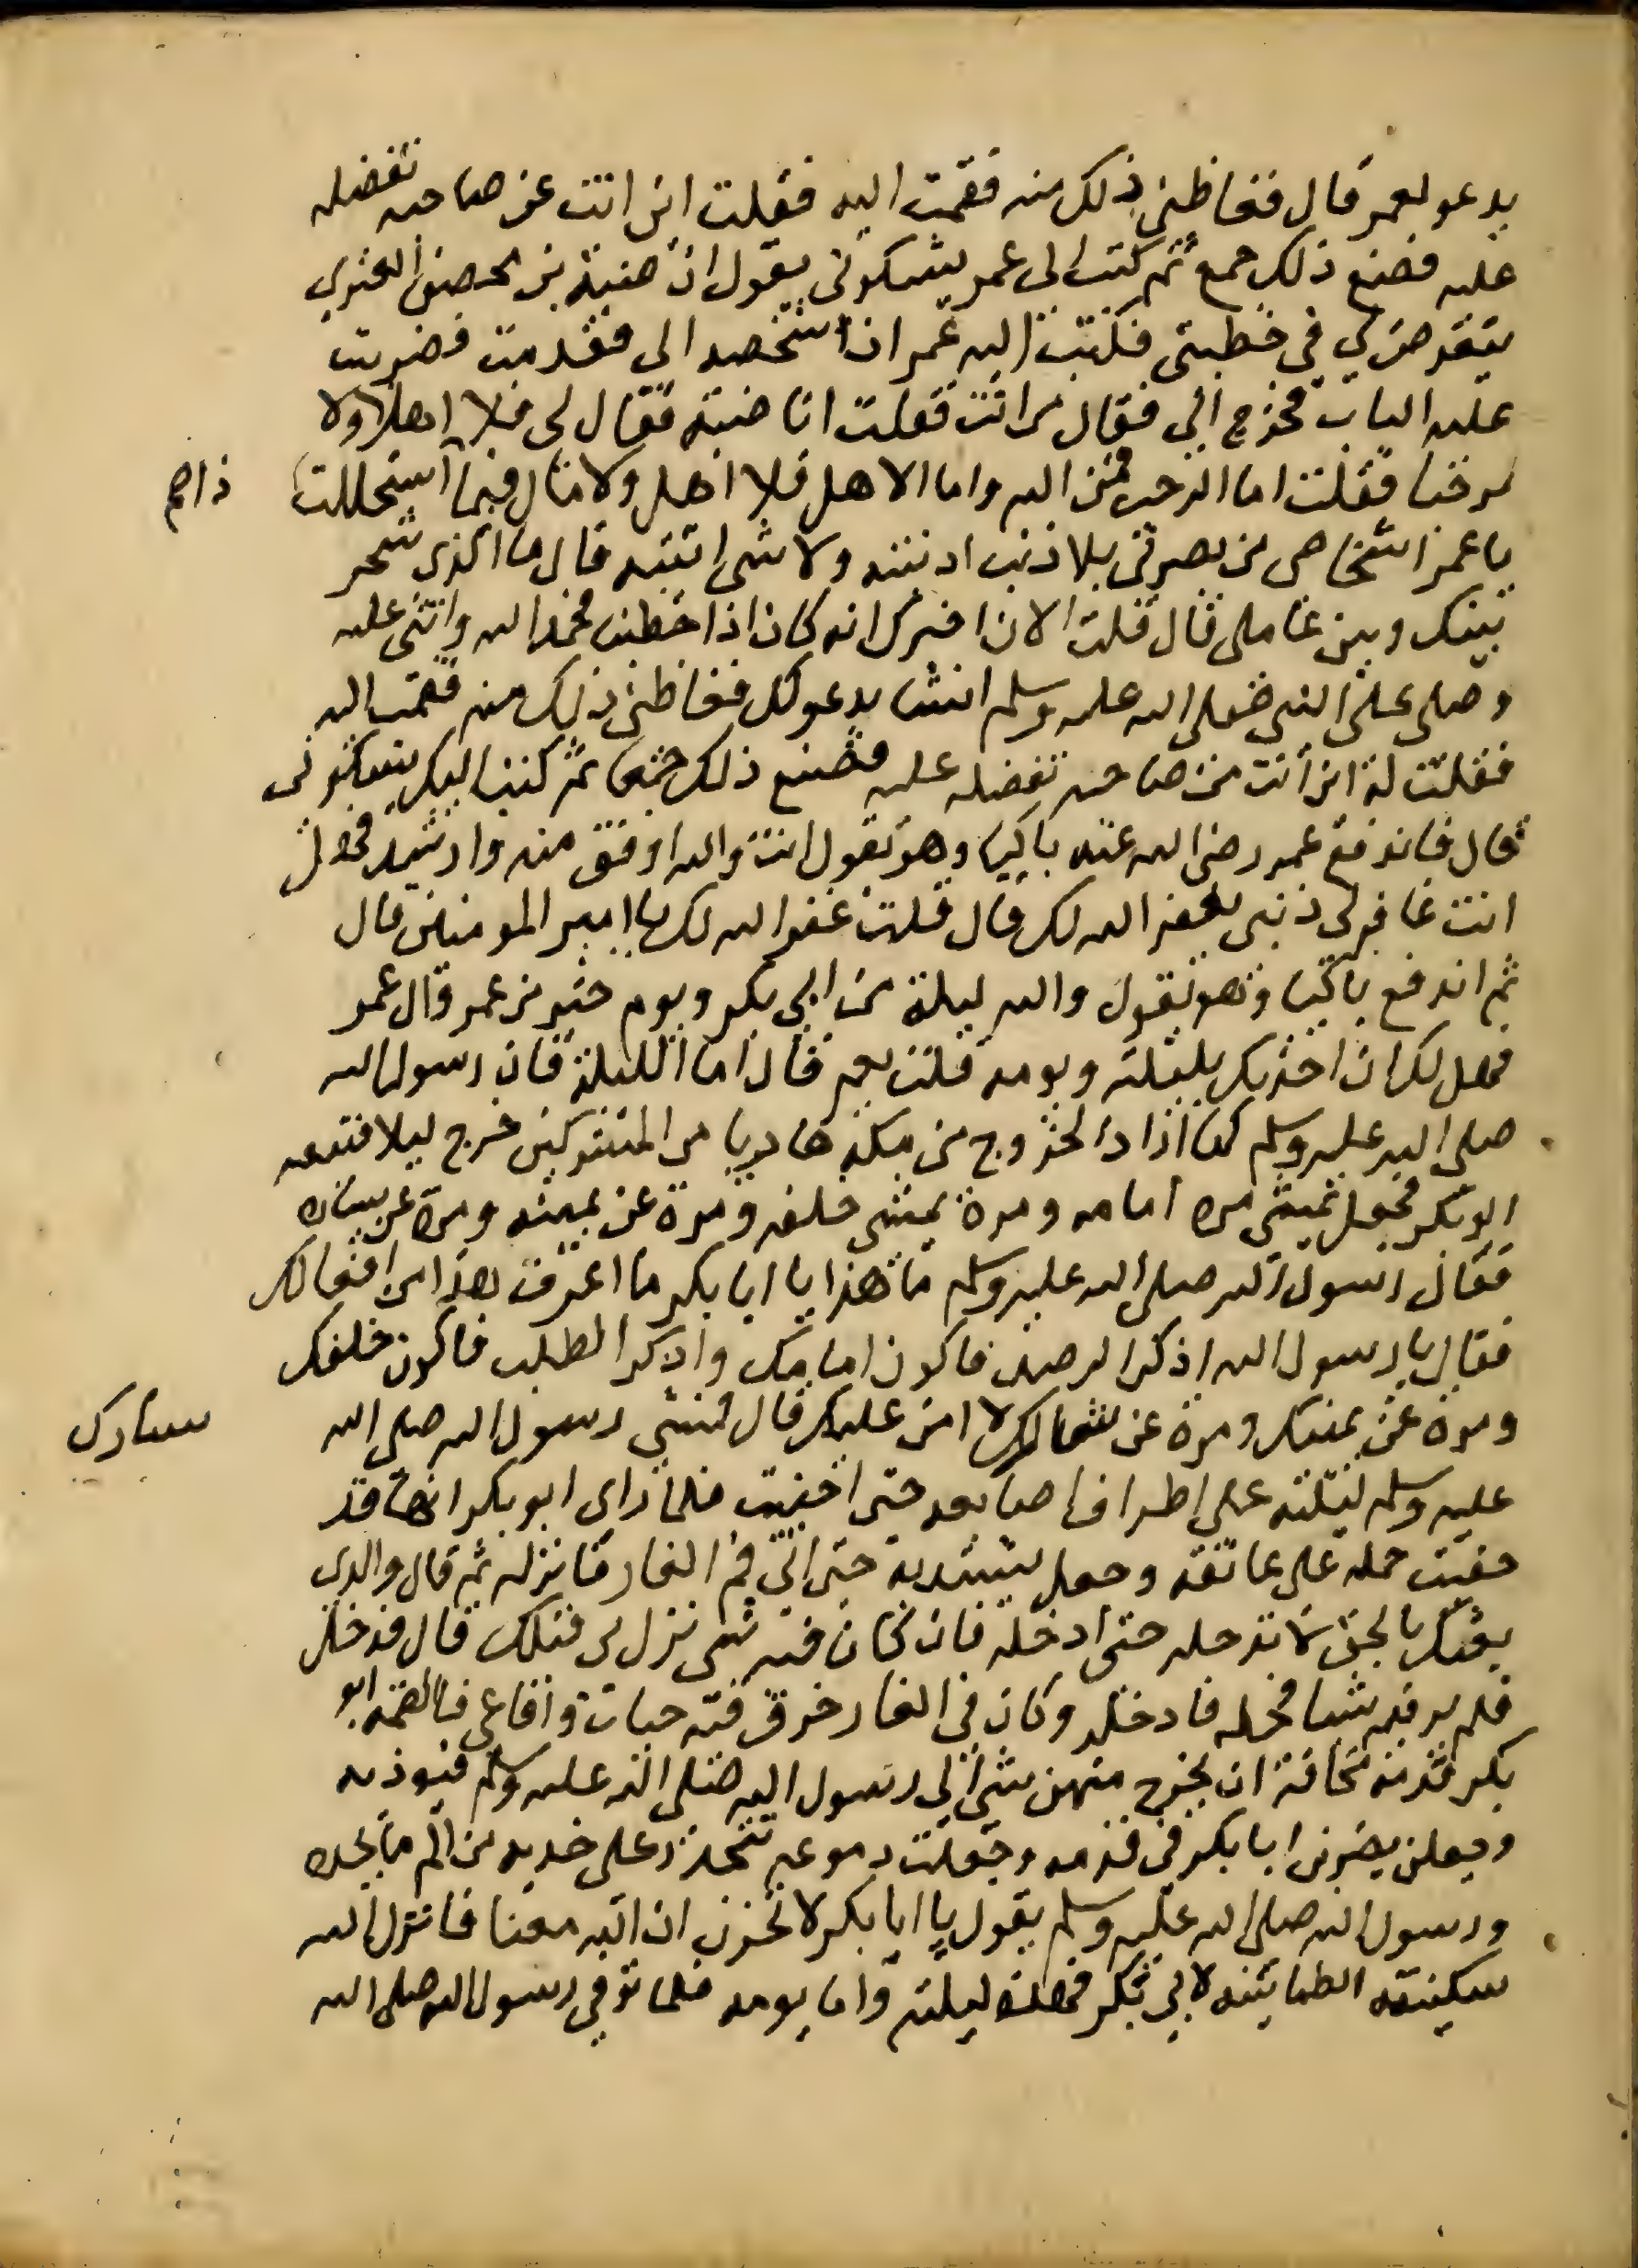 يدعو لعمر قال فغاظني ذلك منه فقمت اليه فقلت اين انت عن صاحبه تفضله
عليه فصنع ذلك جمع ثم كتب الى عمر يشكوني يقول ان ضبة بن محصن العنزي
يتعرض لي في خطبتي فكتب اليه عمر ان اشخصه الى فقدمت فضربت
عليه الباب فخرج الي فقال من انت فقلت انا ضبة فقال لى فلا اهلا ولا
مرحبا فقلت اما الرحب فمن الله واما الاهل فلا اهل ولا مال فبما استحللت
يا عمر اشخاصي من بصرتي بلا ذنب اذنبته ولا شي اتيته قال ما الذى شجر
بينك وبين عاملي قال قلت الان اخبرك انه كان اذا خطبنا فحمد الله واثنى عليه
وصلى على النبي صلى الله عليه وسلم انشا يدعو لك فغاظني ذلك منه فقمت اليه
فقلت له اين انت من صاحبه تفضله عليه فصنع ذلك جمعا ثم كتب اليك يشكوني
قال فاندفع عمر رضى الله عنه باكيا وهو يقول انت والله اوفق منه وارشد فهل
انت غافر لى ذنبي يغفر الله لك قال قلت غفر الله لك يا امير المومنين قال
ثم اندفع باكيا وهو يقول والله ليلة من ابي بكر ويوم خير من عمر وال عمر
فهل لك ان احدثك بليلته ويومه قلت نعم قال اما الليلة فان رسول الله
صلى الله عليه وسلم لما اراد الخروج من مكة هاربا من المشركين خرج ليلا فتبعه
ابو بكر فجعل يمشى مره امامه ومرة يمشى خلفه ومرة عن يمينه ومرة عن يساره
فقال رسول الله صلى الله عليه وسلم ما هذا يا ابا بكر ما اعرف هذا من افعالك
فقال يا رسول الله اذكر الرصد فاكون امامك واذكر الطلب فاكون خلفك
ومرة عن يمينك ومرة عن شمالك لا امن عليك قال فمشى رسول الله صلى الله
عليه وسلم ليلته على اطراف اصابعه حتى حفيت فلما راى ابو بكر انها قد
حفيت حمله على عاتقه وجعل يشتد به حتى اتى فم الغار فانزله ثم قال والذى
بعثك بالحق لا تدخله حتى ادخله فان كان فيه شى نزل بى قبلك قال فدخل
فلم ير فيه شيا فحمله فادخله وكان في الغار خرق فيه حيات وافاعى فالقمه ابو
بكر قدمه مخافة ان يخرج منهن شي الي رسول الله صلى الله عليه وسلم فيوذيه
وجعلن يضربن ابا بكر في قدمه وجعلت دموعه تتحدر على خديه من الم ما يجده
ورسول الله صلى الله عليه وسلم يقول يا ابا بكر لا تحزن ان الله معنا فانزل الله
سكينته الطمانينه لابي بكر فهذه ليلته واما يومه فلما توفي رسول الله صلى الله